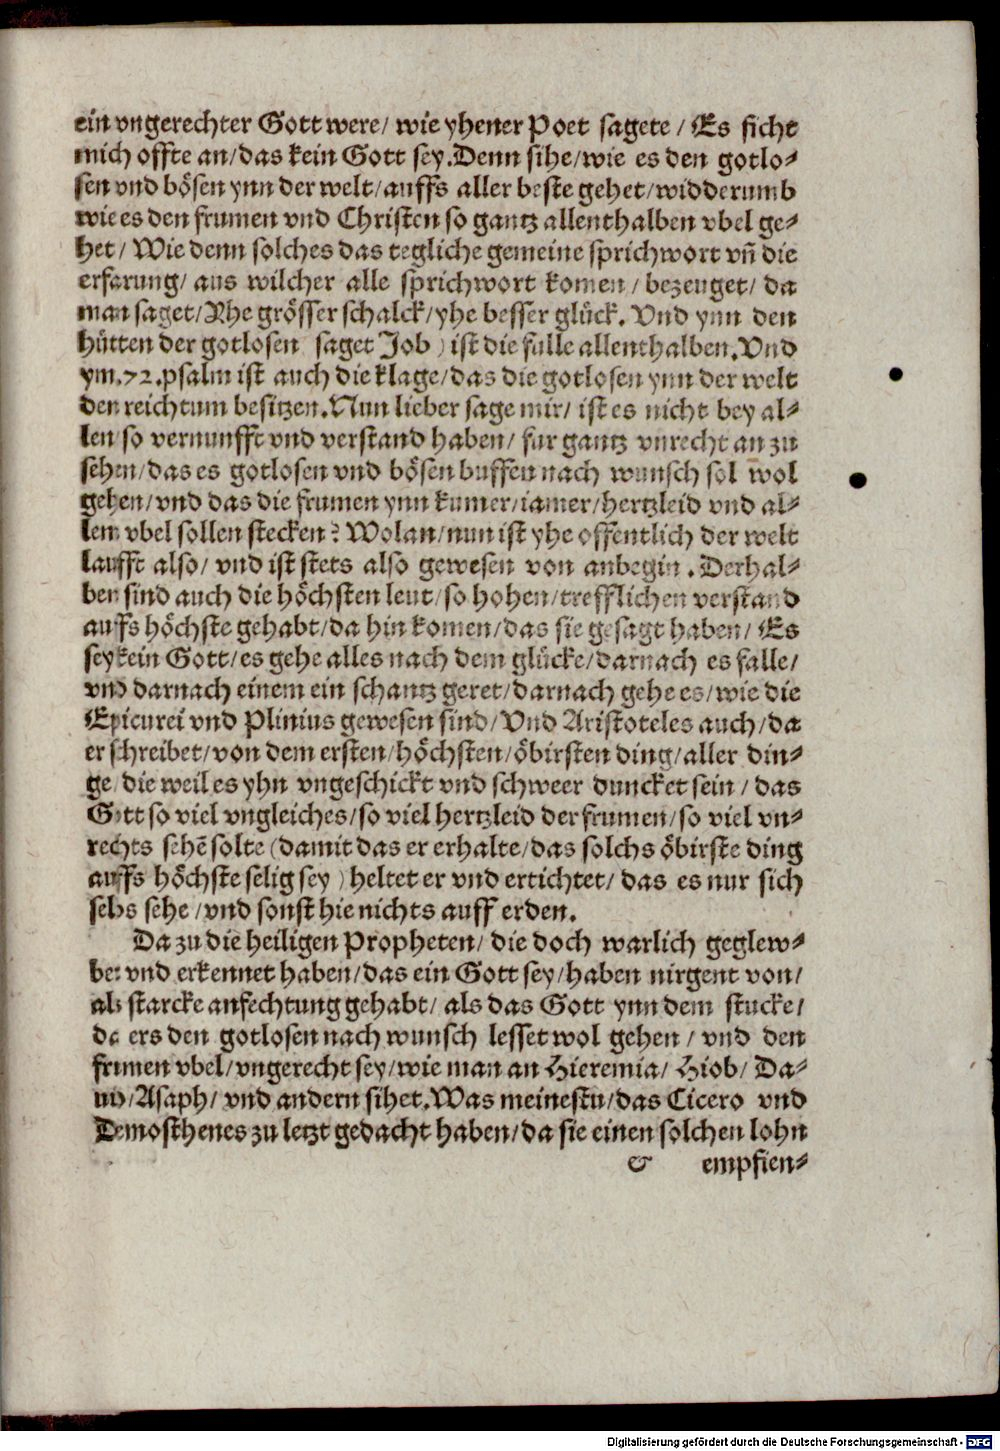 ein vngerechter Gott were/ wie yhener Poet sagete / Es ficht
mich offte an/das kein Gott sey.Denn sihe/wie es den gotlo-
sen vnd bösen ynn der welt/auffs aller beste gehet/widderumb
wie es den frumen vnd Christen so gantz allenthalben vbel ge-
het/ Wie denn solches das tegliche gemeine sprichwort vñ die
erfarung/ aus wilcher alle sprichwort komen / bezeuget/ da
man saget/Yhe grösser schalck/yhe besser glück. Vnd ynn den
hütten der gotlosen saget Job ) ist die fulle allenthalben.Vnd
ym.72.psalm ist auch die klage/das die gotlosen ynn der welt
den reichtum besitzen.Nun lieber sage mir/ ist es nicht bey al-
len so vernunfft vnd verstand haben/ fur gantz vnrecht an zu
sehen/das es gotlosen vnd bösen buffen nach wunsch sol wol
gehen/vnd das die frumen ynn kumer/iamer/hertzleid vnd al-
lem vbel sollen stecken? Wolan/nun ist yhe offentlich der welt
laufft also/ vnd ist stets also gewesen von anbegin . Derhal-
ben sind auch die höchsten leut/so hohen/trefflichen verstand
auffs höchste gehabt/da hin komen/das sie gesagt haben/ Es
sey kein Gott/es gehe alles nach dem glücke/darnach es falle/
vnd darnach einem ein schantz geret/darnach gehe es/wie die
Epicurei vnd Plinius gewesen sind/Vnd Aristoteles auch/da
er schreibet/von dem ersten/höchsten/öbirsten ding/aller din-
ge/die weil es yhn vngeschickt vnd schweer duncket sein / das
Gott so viel vngleiches/so viel hertzleid der frumen/so viel vn-
rechts sehē solte (damit das er erhalte/das solchs öbirste ding
auffs höchste selig sey ) heltet er vnd ertichtet/ das es nur sich
selbs sehe /vnd sonst hie nichts auff erden.
Da zu die heiligen Propheten/ die doch warlich geglew-
bet vnd erkennet haben/das ein Gott sey/haben nirgent von/
als starcke anfechtung gehabt/ als das Gott ynn dem stucke/
da ers den gotlosen nach wunsch lesset wol gehen / vnd den
frumen vbel/vngerecht sey/wie man an Hieremia/ Hiob/ Da-
uid/Asaph/ vnd andern sihet.Was meinestu/das Cicero vnd
Demosthenes zu letzt gedacht haben/da sie einen solchen lohn
empfien-
Digitalisierung gefördert durch die Deutsche Forschungsgemeinschaft - DFG